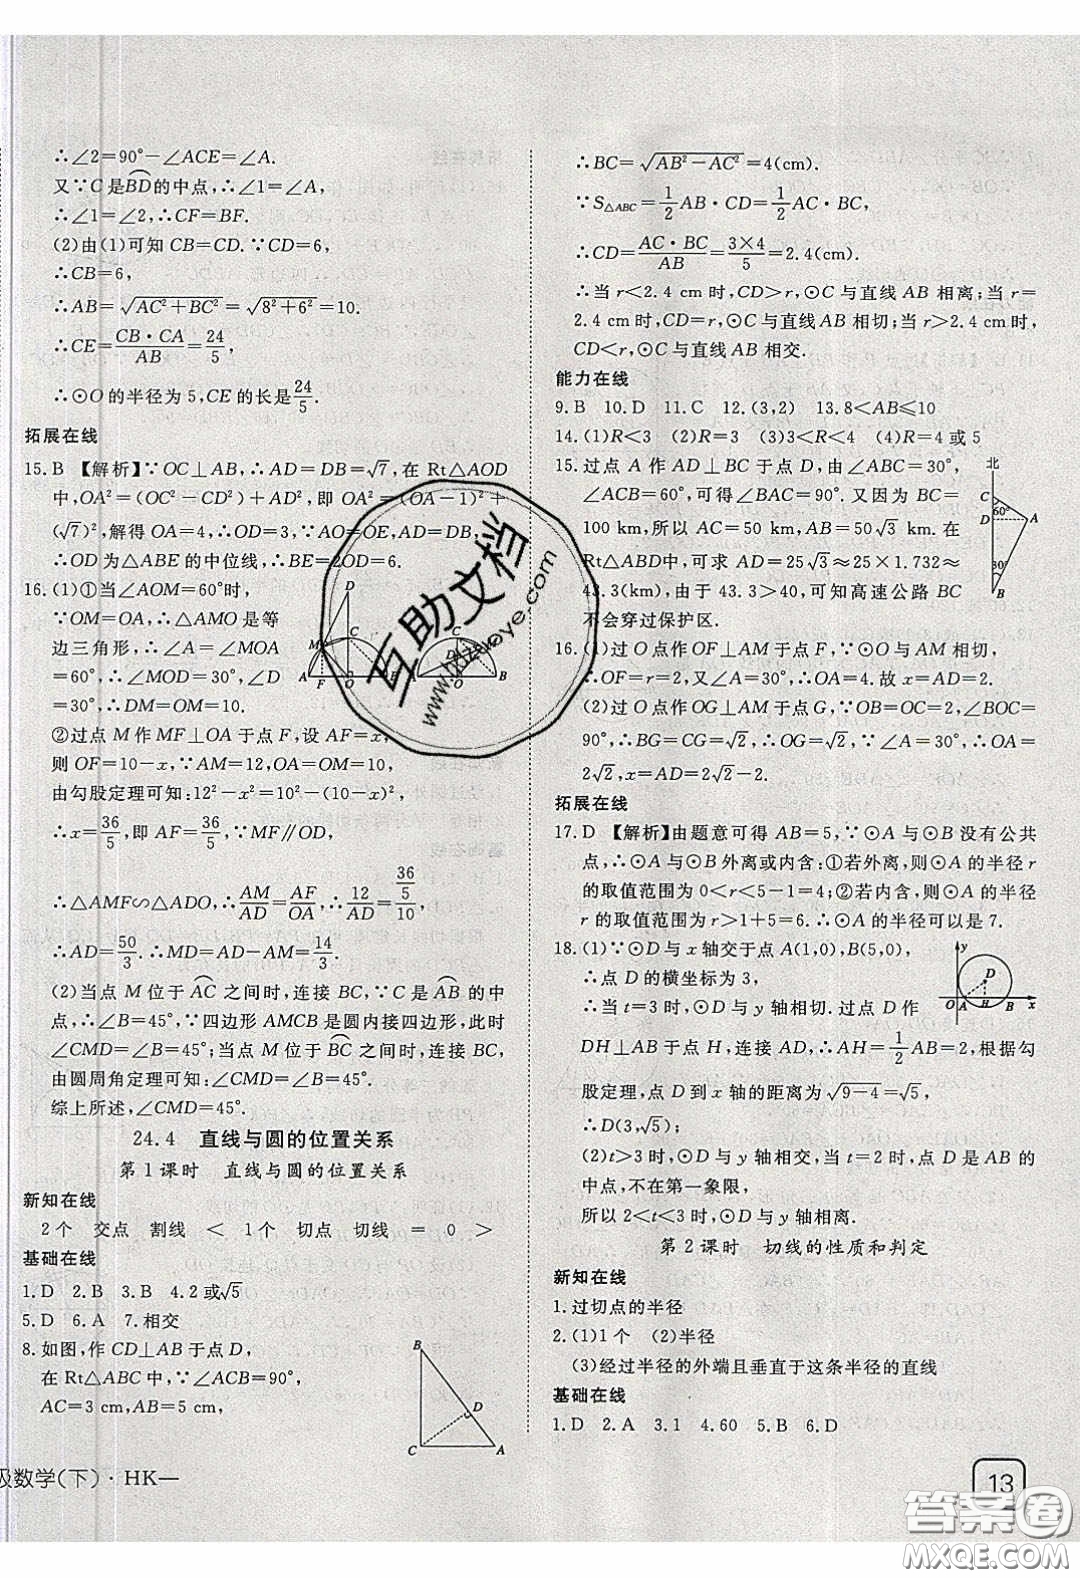 ∴∠2=90°-∠ACE=∠A.
又∵C是BD的中点,∴∠1=∠A.
∴∠1=∠2,∴CF=BF.
(2)由(1)可知 CB=CD.∵CD=6,
∴CB=6,
∴AB=√(AC²+BC²)=√(8²+6²)=10.
∴CE=CB·CA/AB=24/5,
∴⊙O的半径为5,CE的长是24/5.
拓展在线
15.B 【解析】∵OC⊥AB,∴AD=DB=√7,在 Rt△AOD
中,OA²=(OC²-CD)²+AD²,即 OA²=(OA-1)²+
(√7)²,解得 OA=4,∴OD=3,∵AO=OE,AD=DB,
∴OD为△ABE的中位线,∴BE=2OD=6.
16.(1)①当∠AOM=60°时,
∵OM=OA,∴△AMO是等
边三角形,∴∠A=∠MOA
=60°,∴∠MOD=30°,∠D
=30°,∴DM=OM=10.
②过点 M 作 MF⊥OA 于点 F,设 AF=x,
则 OF=10-x,∵AM=12,OA=OM=10,
由勾股定理可知:12²-x²=10²-(10-x)²,
∴x=36/5,即 AF=36/5,∵MF∥OD,
∴△AMF∽△ADO,∴AM/AD=AF/OA,∴12/AD=(36/5)/10,
∴AD=50/3.∴MD=AD-AM=14/3.
(2)当点 M 位于 AC 之间时,连接 BC,∵C 是 AB 的中
点,∴∠B=45°,∵四边形 AMCB 是圆内接四边形,此时
∠CMD=∠B=45°;当点 M 位于 BC 之间时,连接 BC,
由圆周角定理可知:∠CMD=∠B=45°.
综上所述,∠CMD=45°.
24.4 直线与圆的位置关系
第1课时 直线与圆的位置关系
新知在线
2个 交点 割线 < 1个 切点 切线 = 0 >
基础在线
1.D 2.B 3.B 4.2或√5
5.D 6.A 7.相交
8.如图,作 CD⊥AB 于点 D,
在 Rt△ABC 中,∵∠ACB=90°,
AC=3 cm,AB=5 cm,
B
D
C A
级数学(下)·HK一
∴BC=√(AB²-AC²)=4(cm).
∵S△ABC=1/2AB·CD=1/2AC·BC,
∴CD=AC·BC/AB=3×4/5=2.4(cm).
∴当 r<2.4 cm时,CD>r,⊙C与直线 AB 相离;当 r=
2.4 cm时,CD=r,⊙C与直线AB相切;当 r>2.4 cm时,
CD<r,⊙C与直线AB相交.
能力在线
9.B 10.D 11.C 12.(3,2) 13.8<AB≤10
14.(1)R<3 (2)R=3 (3)3<R<4 (4)R=4 或 5
15.过点 A 作 AD⊥BC 于点 D,由∠ABC=30°,
∠ACB=60°,可得∠BAC=90°.又因为 BC=
100 km,所以 AC=50 km,AB=50√3 km.在
Rt△ABD中,可求 AD=25√3≈25×1.732≈
43.3(km),由于 43.3>40,可知高速公路 BC
不会穿过保护区.
北
C
60°
D A
30°
B
16.(1)过 O 点作 OF⊥AM 于点 F,∵⊙O 与 AM 相切,
∴OF=r=2,∵∠A=30°,∴OA=4.故 x=AD=2.
(2)过 O 点作 OG⊥AM 于点 G,∵OB=OC=2,∠BOC=
90°,∴BG=CG=√2,∴OG=√2,∵∠A=30°,∴OA=
2√2,x=AD=2√2-2.
拓展在线
17.D 【解析】由题意可得 AB=5,∵⊙A与⊙B没有公共
点,∴⊙A与⊙B外离或内含:①若外离,则⊙A的半径 r
的取值范围为 0<r<5-1=4;②若内含,则⊙A的半径
r的取值范围为 r>1+5=6.∴⊙A的半径可以是 7.
18.(1)∵⊙D与 x 轴交于点 A(1,0),B(5,0),
∴点 D 的横坐标为 3,
∴当 t=3 时,⊙D与 y 轴相切.过点 D 作
DH⊥AB 于点 H,连接 AD,∴AH=1/2AB=2,根据勾
股定理,点 D 到 x 轴的距离为√(9-4)=√5,
∴D(3,√5);
(2)t>3时,⊙D与 y 轴相交,当 t=2时,点 D 是 AB 的
中点,不在第一象限,
所以 2<t<3时,⊙D与 y 轴相离.
y
D
O A H B x
第2课时 切线的性质和判定
新知在线
1.过切点的半径
2.(1)1个 (2)半径
(3)经过半径的外端且垂直于这条半径的直线
基础在线
1.D 2.A 3.1 4.60 5.B 6.D
13
互助文档
答案圈
MXQE.COM